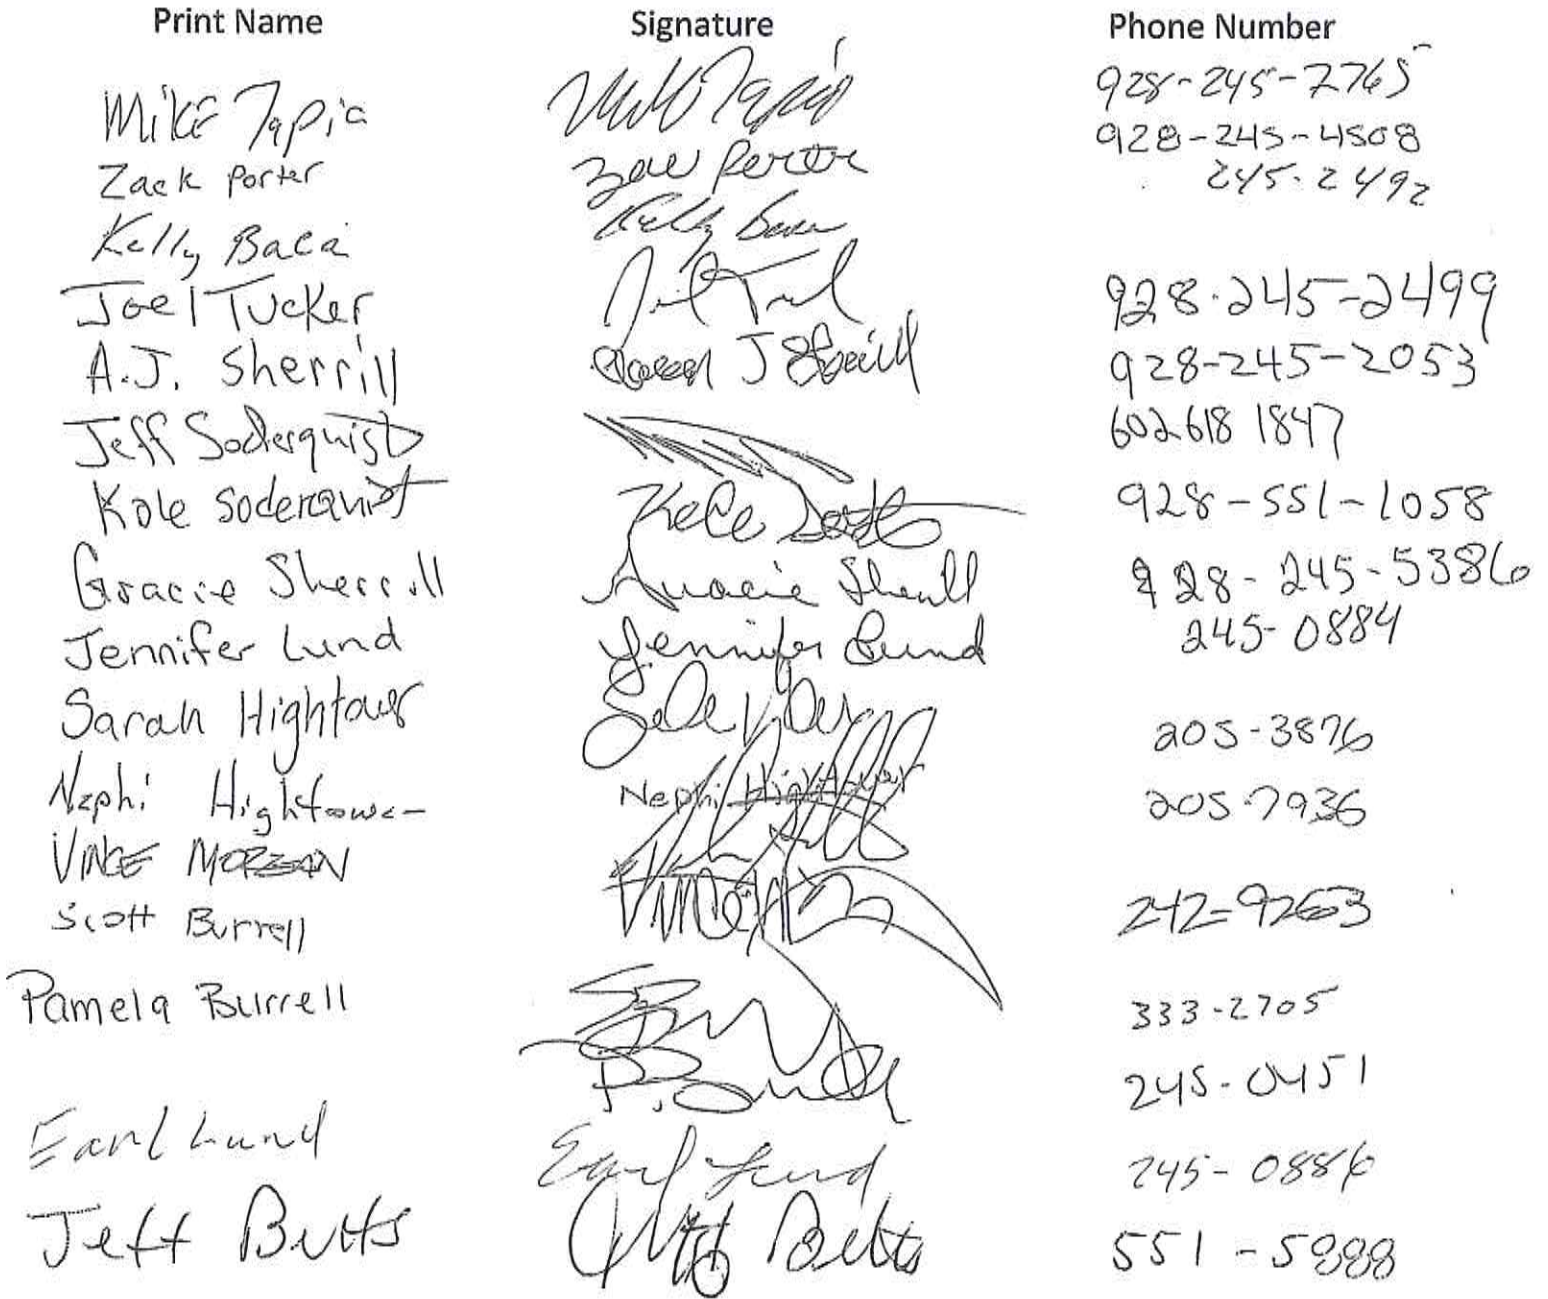 Print Name Signature Phone Number
Mike Tapia Mike Tapia 928-245-7765
Zack Porter Zack Porter 928-245-4508
Kelly Baca Kelly Baca 245-2492
Joel Tucker 928-245-2499
A.J. Sherrill J Sherrill 928-245-2053
Jeff Soderquist 602 618 1847
Kole Soderquist Kole 928-551-1058
Gracie Sherrill Gracie Sherrill 928-245-5386
Jennifer Lund Jennifer Lund 245-0884
Sarah Hightower 205-3876
Nephi Hightower Nephi Hightower 205-7936
VINCE MORGAN 242-9263
Scott Burrell 333-2705
Pamela Burrell 245-0451
Earl Lund Earl Lund 245-0886
Jeff Butts Jeff Butts 551-5888